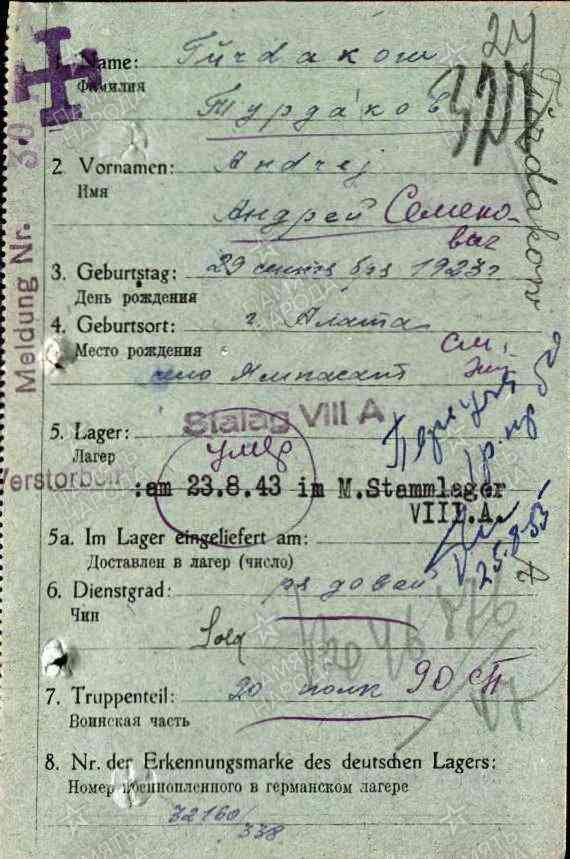 24
1. Name: Türdakow
Фамилия
Турдаков
2. Vornamen: Andrej
Имя
Андрей Семено-
вич
3. Geburtstag: 29 сентября 1923г
День рождения
4. Geburtsort: г Алмата
Место рождения
см.
село
Stalag VIII A
5. Lager:
Лагер
умер
Verstorben
:am 23.8.43 im M.Stammlager
VIII.A.
5a. Im Lager eingeliefert am:
Доставлен в лагер (число)
25.8.53
6. Dienstgrad: рядовой
Чин
Sold
7. Truppenteil: 20 полк 90 сп
Воинская часть
8. Nr. der Erkennungsmarke des deutschen Lagers:
Номер военнопленного в германском лагере
32160/
338
Meldung Nr. 30
Türdakow
ПАМЯТЬ НАРОДА